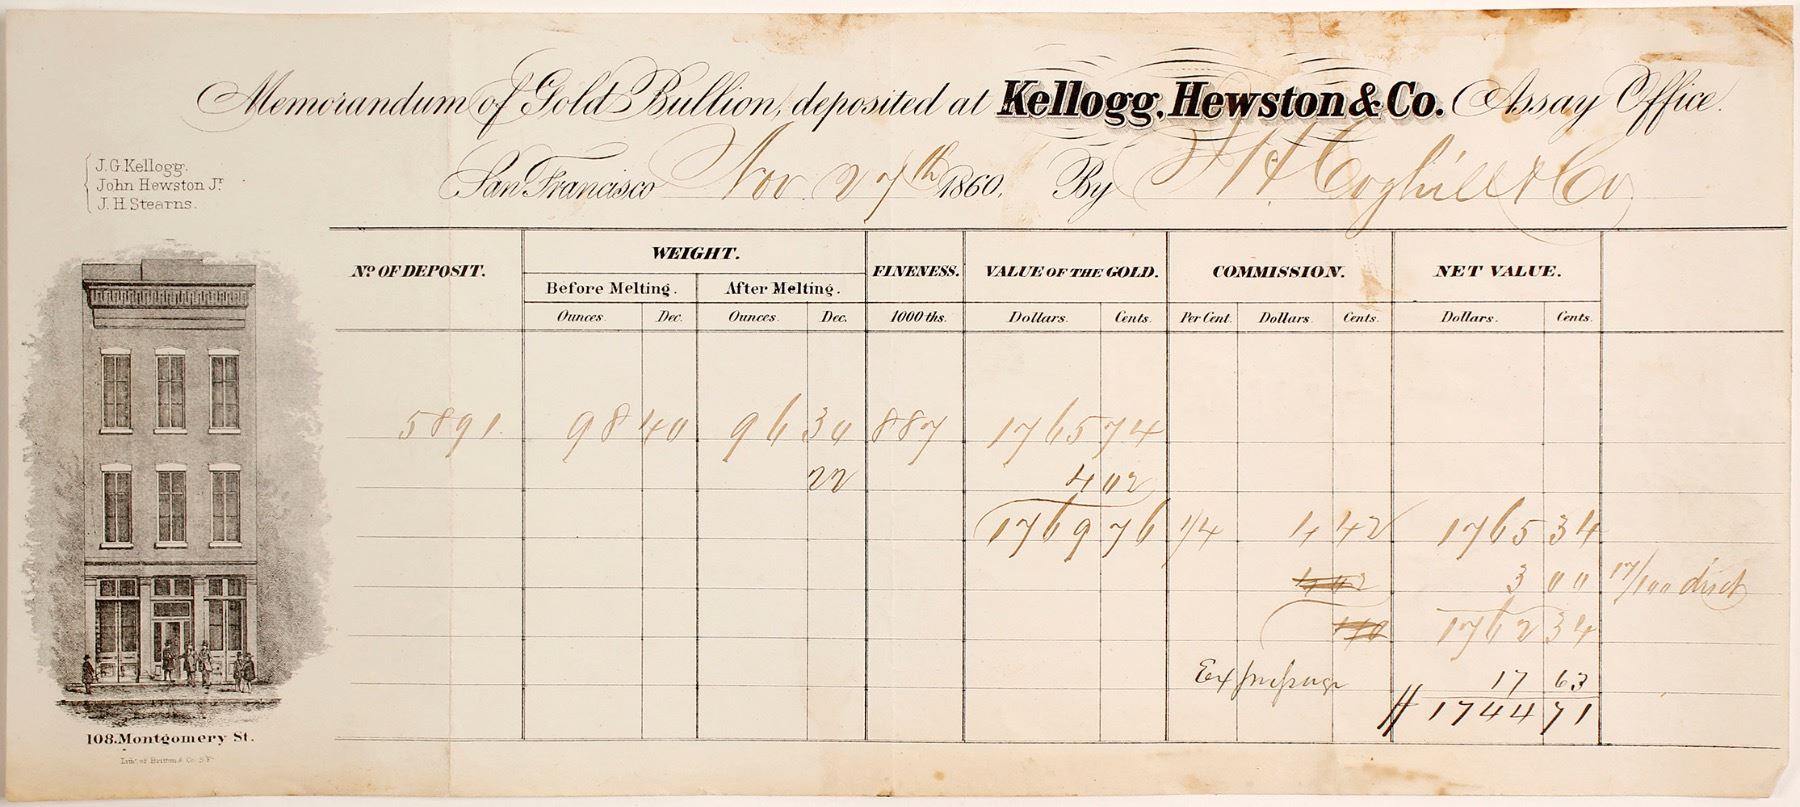 Memorandum of Gold Bullion, deposited at Kellogg, Hewston & Co. Assay Office.
J. G. Kellogg.
John Hewston Jr
J. H. Stearns.
San Francisco Nov. 27th 1860. By J H Coghill & Co
No. OF DEPOSIT. WEIGHT. FINENESS. VALUE OF THE GOLD. COMMISSION. NET VALUE.
Before Melting. After Melting.
Ounces. Dec. Ounces. Dec. 1000 ths. Dollars. Cents. Per Cent. Dollars. Cents. Dollars. Cents.
5891. 98 40 96 30 887 1765 74
22 4 02
1769 76 1/4 4 42 1765 34
4 02 3 00 17/100 disct
1762 34
17 63
1744 71
108. Montgomery St.
Lith. of Britton & Co. S.F.